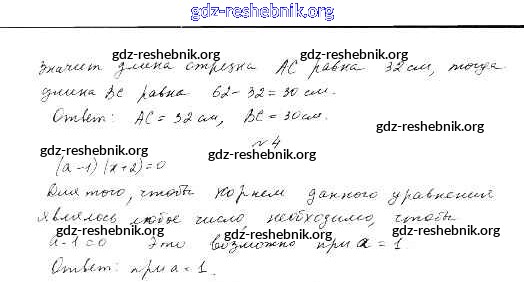 gdz-reshebnik.org
gdz-reshebnik.org gdz-reshebnik.org
значит длина отрезка AC равна 32 см, тогда
длина BC равна 62-32=30 см.
Ответ: AC = 32 см, BC = 30 см.
gdz-reshebnik.org
№4
gdz-reshebnik.org gdz-reshebnik.org
(a-1)(x+2)=0
Для того, чтобы корнем данного уравнения
являлось любое число, необходимо, чтобы
gdz-reshebnik.org gdz-reshebnik.org gdz-reshebnik.org
a-1=0 Это возможно при a = 1.
Ответ: при a = 1.